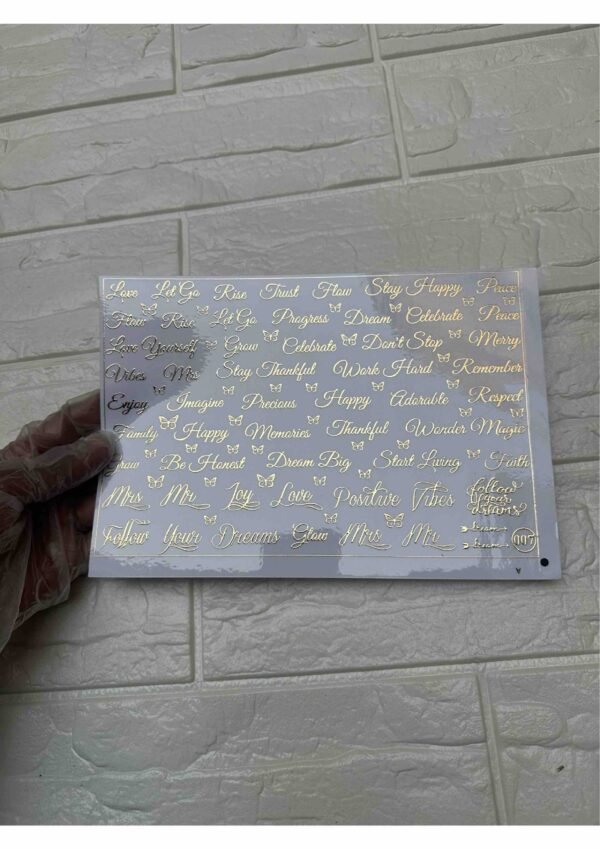 Love Let Go Rise Trust Flow Stay Happy Peace
Flow Rise Let Go Progress Dream Celebrate Peace
Love Yourself Grow Celebrate Don't Stop Merry
Vibes Mrs Stay Thankful Work Hard Remember
Enjoy Imagine Precious Happy Adorable Respect
Family Happy Memories Thankful Wonder Magic
Grow Be Honest Dream Big Start Living Faith
Mrs Mr Joy Love Positive Vibes follow your dreams
Follow Your Dreams Glow Mrs Mr dream dream 007